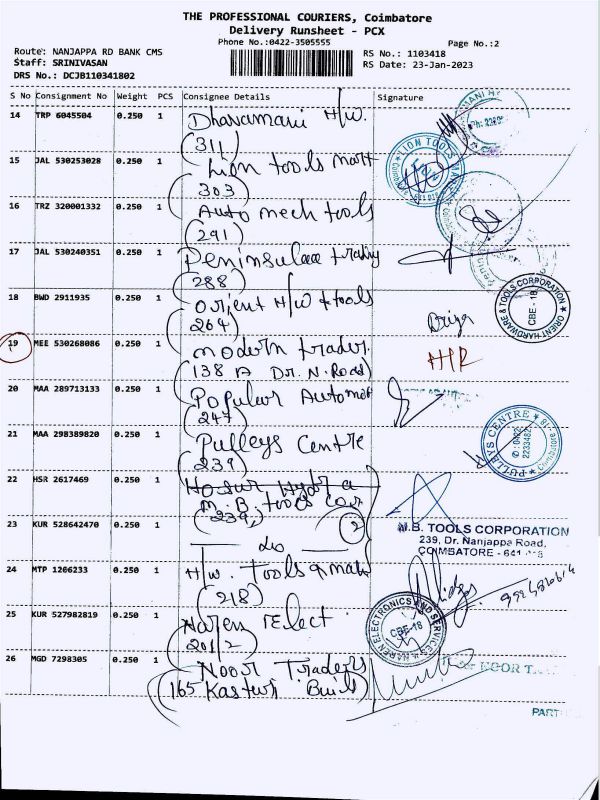 THE PROFESSIONAL COURIERS, Coimbatore
Delivery Runsheet - PCX
Phone No.:0422-3505555
Page No.:2
Route: NANJAPPA RD BANK CMS
RS No.: 1103418
Staff: SRINIVASAN
RS Date: 23-Jan-2023
DRS No.: DCJB110341802
S No Consignment No Weight PCS Consignee Details Signature
14 TRP 6045504 0.250 1 Dharamani H/W.
(311)
15 JAL 530253028 0.250 1 Lion tools mart
(303)
LION TOOLS MART
16 TRZ 320001332 0.250 1 Auto mech tools
(291)
17 JAL 530240351 0.250 1 Peninsulaa trading
(288)
18 BWD 2911935 0.250 1 Orient H/W & tools
(264)
ORIENT HARDWARE & TOOLS CORPORATION
CBE - 18
19 MEE 530268086 0.250 1 modern trader.
(138 A Dr. N. Road)
20 MAA 289713133 0.250 1 Popular Automot
(247)
21 MAA 298389820 0.250 1 Pulleys Centre
(239)
PULLEYS CENTRE
0422
2233482
Coimbatore-18
22 HSR 2617469 0.250 1 Hosur Hydra
M.B. tools Cor.
(239)
23 KUR 528642470 0.250 1 do (2)
M.B. TOOLS CORPORATION
239, Dr. Nanjappa Road,
COIMBATORE - 641
24 MTP 1266233 0.250 1 H/w. Tools & mat
(218)
25 KUR 527982819 0.250 1 Naren Elect.
201/2
NAREN ELECTRONICS AND SERVICES
CBE-18
26 MGD 7298305 0.250 1 Noor Traders
(165 Kasturi Buil)
For NOOR
PART